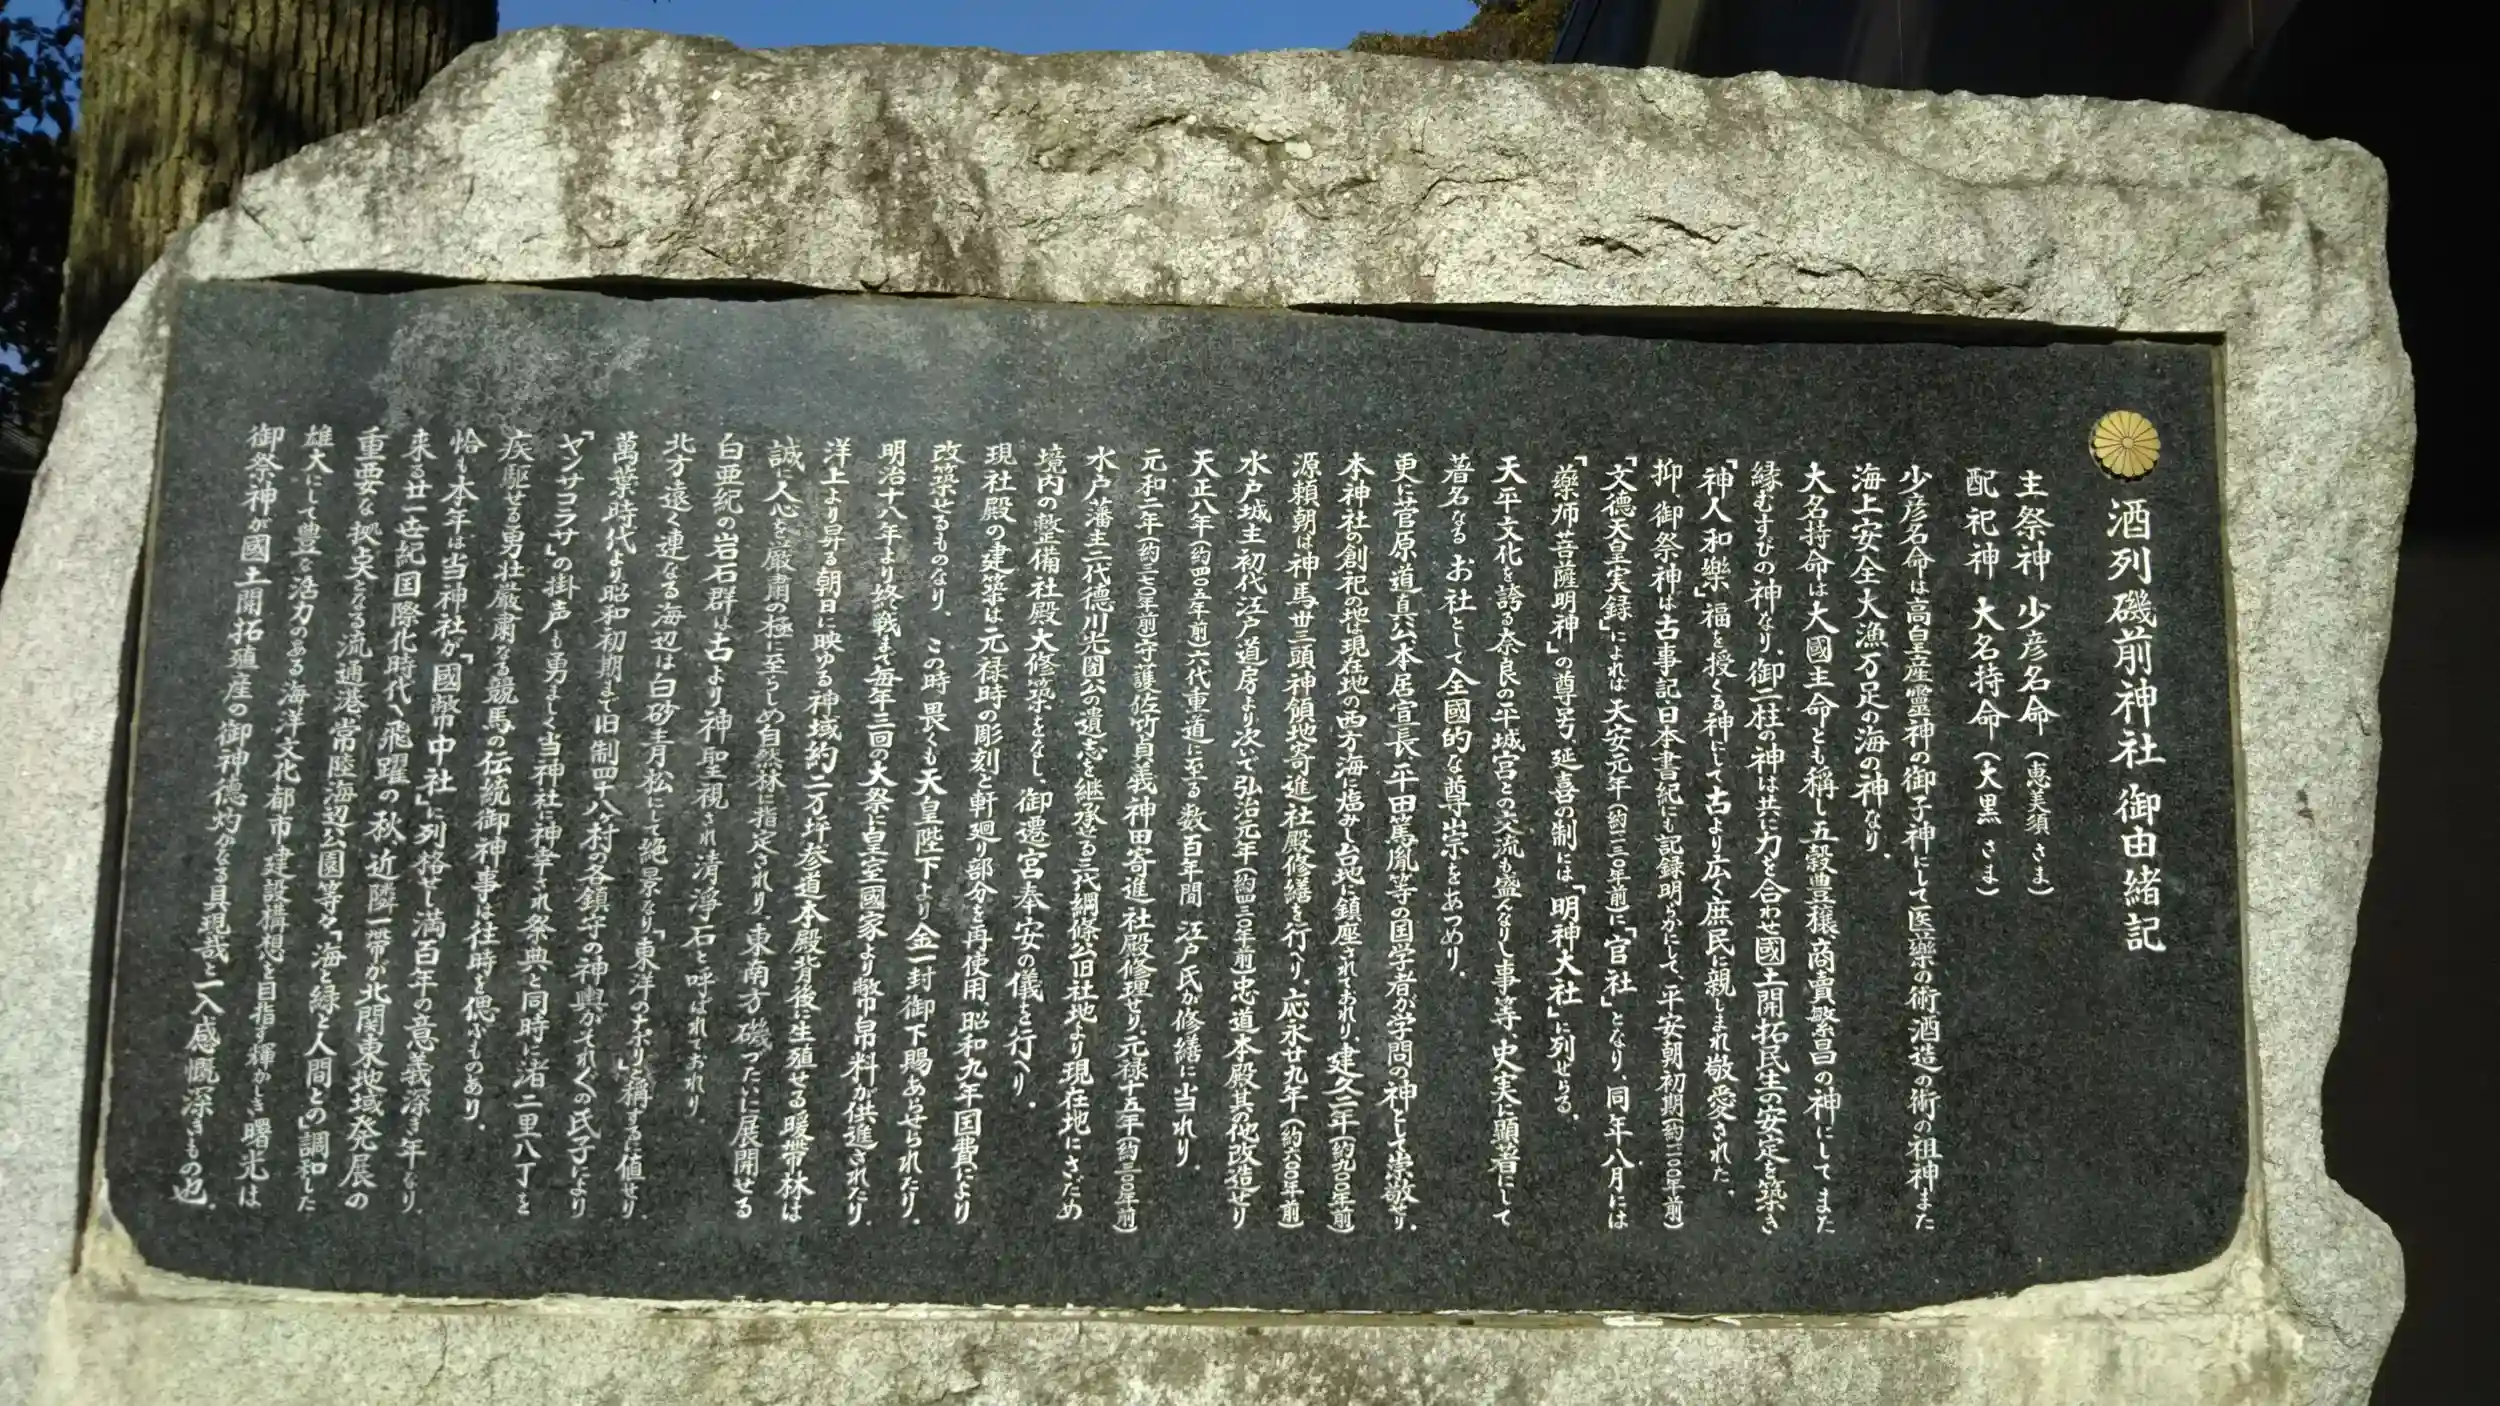 酒列磯前神社 御由緒記
主祭神 少彦名命(恵美須 さま)
配祀神 大名持命(大黒 さま)
少彦名命は高皇産霊神の御子神にして医薬の術酒造の術の祖神また
海上安全大漁万足の海の神なり.
大名持命は大國主命とも稱し五穀豊穣商賣繁昌の神にしてまた
縁むすびの神なり、御二柱の神は共に力を合わせ國土開拓民生の安定を築き
「神人和樂」福を授くる神にして古より広く庶民に親しまれ敬愛された.
抑 御祭神は古事記・日本書紀にも記録明らかにして、平安朝初期(約一一〇〇年前)
「文徳天皇実録」によれば天安元年(約一一三〇年前)に「官社」となり、同年八月には
「薬师菩薩明神」の尊号、延喜の制には「明神大社」に列せらる.
天平文化を誇る奈良の平城宮との交流も盛んなりし事等、史実に顕著にして
著名なる お社として全國的な尊崇をあつめり.
更に菅原道真公本居宣長平田篤胤等の国学者が学問の神として崇敬せり.
本神社の創祀の地は現在地の西方海に臨みし台地に鎮座されており、建久二年(約九〇〇年前)
源頼朝は神馬丗三頭神領地寄進社殿修繕を行へり、応永廿九年(約六〇〇年前)
水戸城主初代江戸道房より次で弘治元年(約四三〇年前)忠道本殿其の他改造せり
天正八年(約四〇五年前)六代重道に至る 数百年間 江戸氏が修繕に当れり.
元和二年(約三七〇年前)守護佐竹貞義神田寄進社殿修理せり、元禄十五年(約三〇〇年前)
水戸藩主二代徳川光圀公の遺志を継承せる三代綱條公旧社地より現在地にさだめ
境内の整備社殿大修築をなし、御遷宮奉安の儀を行へり.
現社殿の建築は元禄時の彫刻と軒廻り部分を再使用、昭和九年国費により
改築せるものなり、 この時畏くも天皇陛下より金一封御下賜あらせられたり.
明治十八年より終戦まで毎年三回の大祭に皇室國家より幣帛料が供進されたり.
洋上より昇る朝日に映ゆる神域約二万坪参道本殿背後に生殖せる暖帯林は
誠に人心を厳粛の極に至らしめ自然林に指定されり、東南方磯づたいに展開せる
白亜紀の岩石群は古より神聖視され清浄石と呼ばれておれり.
北方遠く連なる海辺は白砂青松にして絶景なり「東洋のナポリ」と稱するに値せり.
萬葉時代より昭和初期まで旧制四十八ヶ村の各鎮守の神輿がそれぞれの氏子により
「ヤンサコラサ」の掛声も勇ましく当神社に神幸され祭典と同時に渚二里八丁を
疾駆せる勇壮厳粛なる競馬の伝統御神事は往時を偲ぶものあり.
恰も本年は当神社が「國幣中社」に列格せし満百年の意義深き年なり.
来る廿一世紀国際化時代へ飛躍の秋、近隣一帯が北関東地域発展の
重要な拠点となる流通港・常陸海辺公園等々「海と緑と人間との」調和した
雄大にして豊な活力のある海洋文化都市建設構想を目指す輝かしき曙光は
御祭神が國土開拓殖産の御神徳灼かなる具現哉と一入感慨深きもの也.